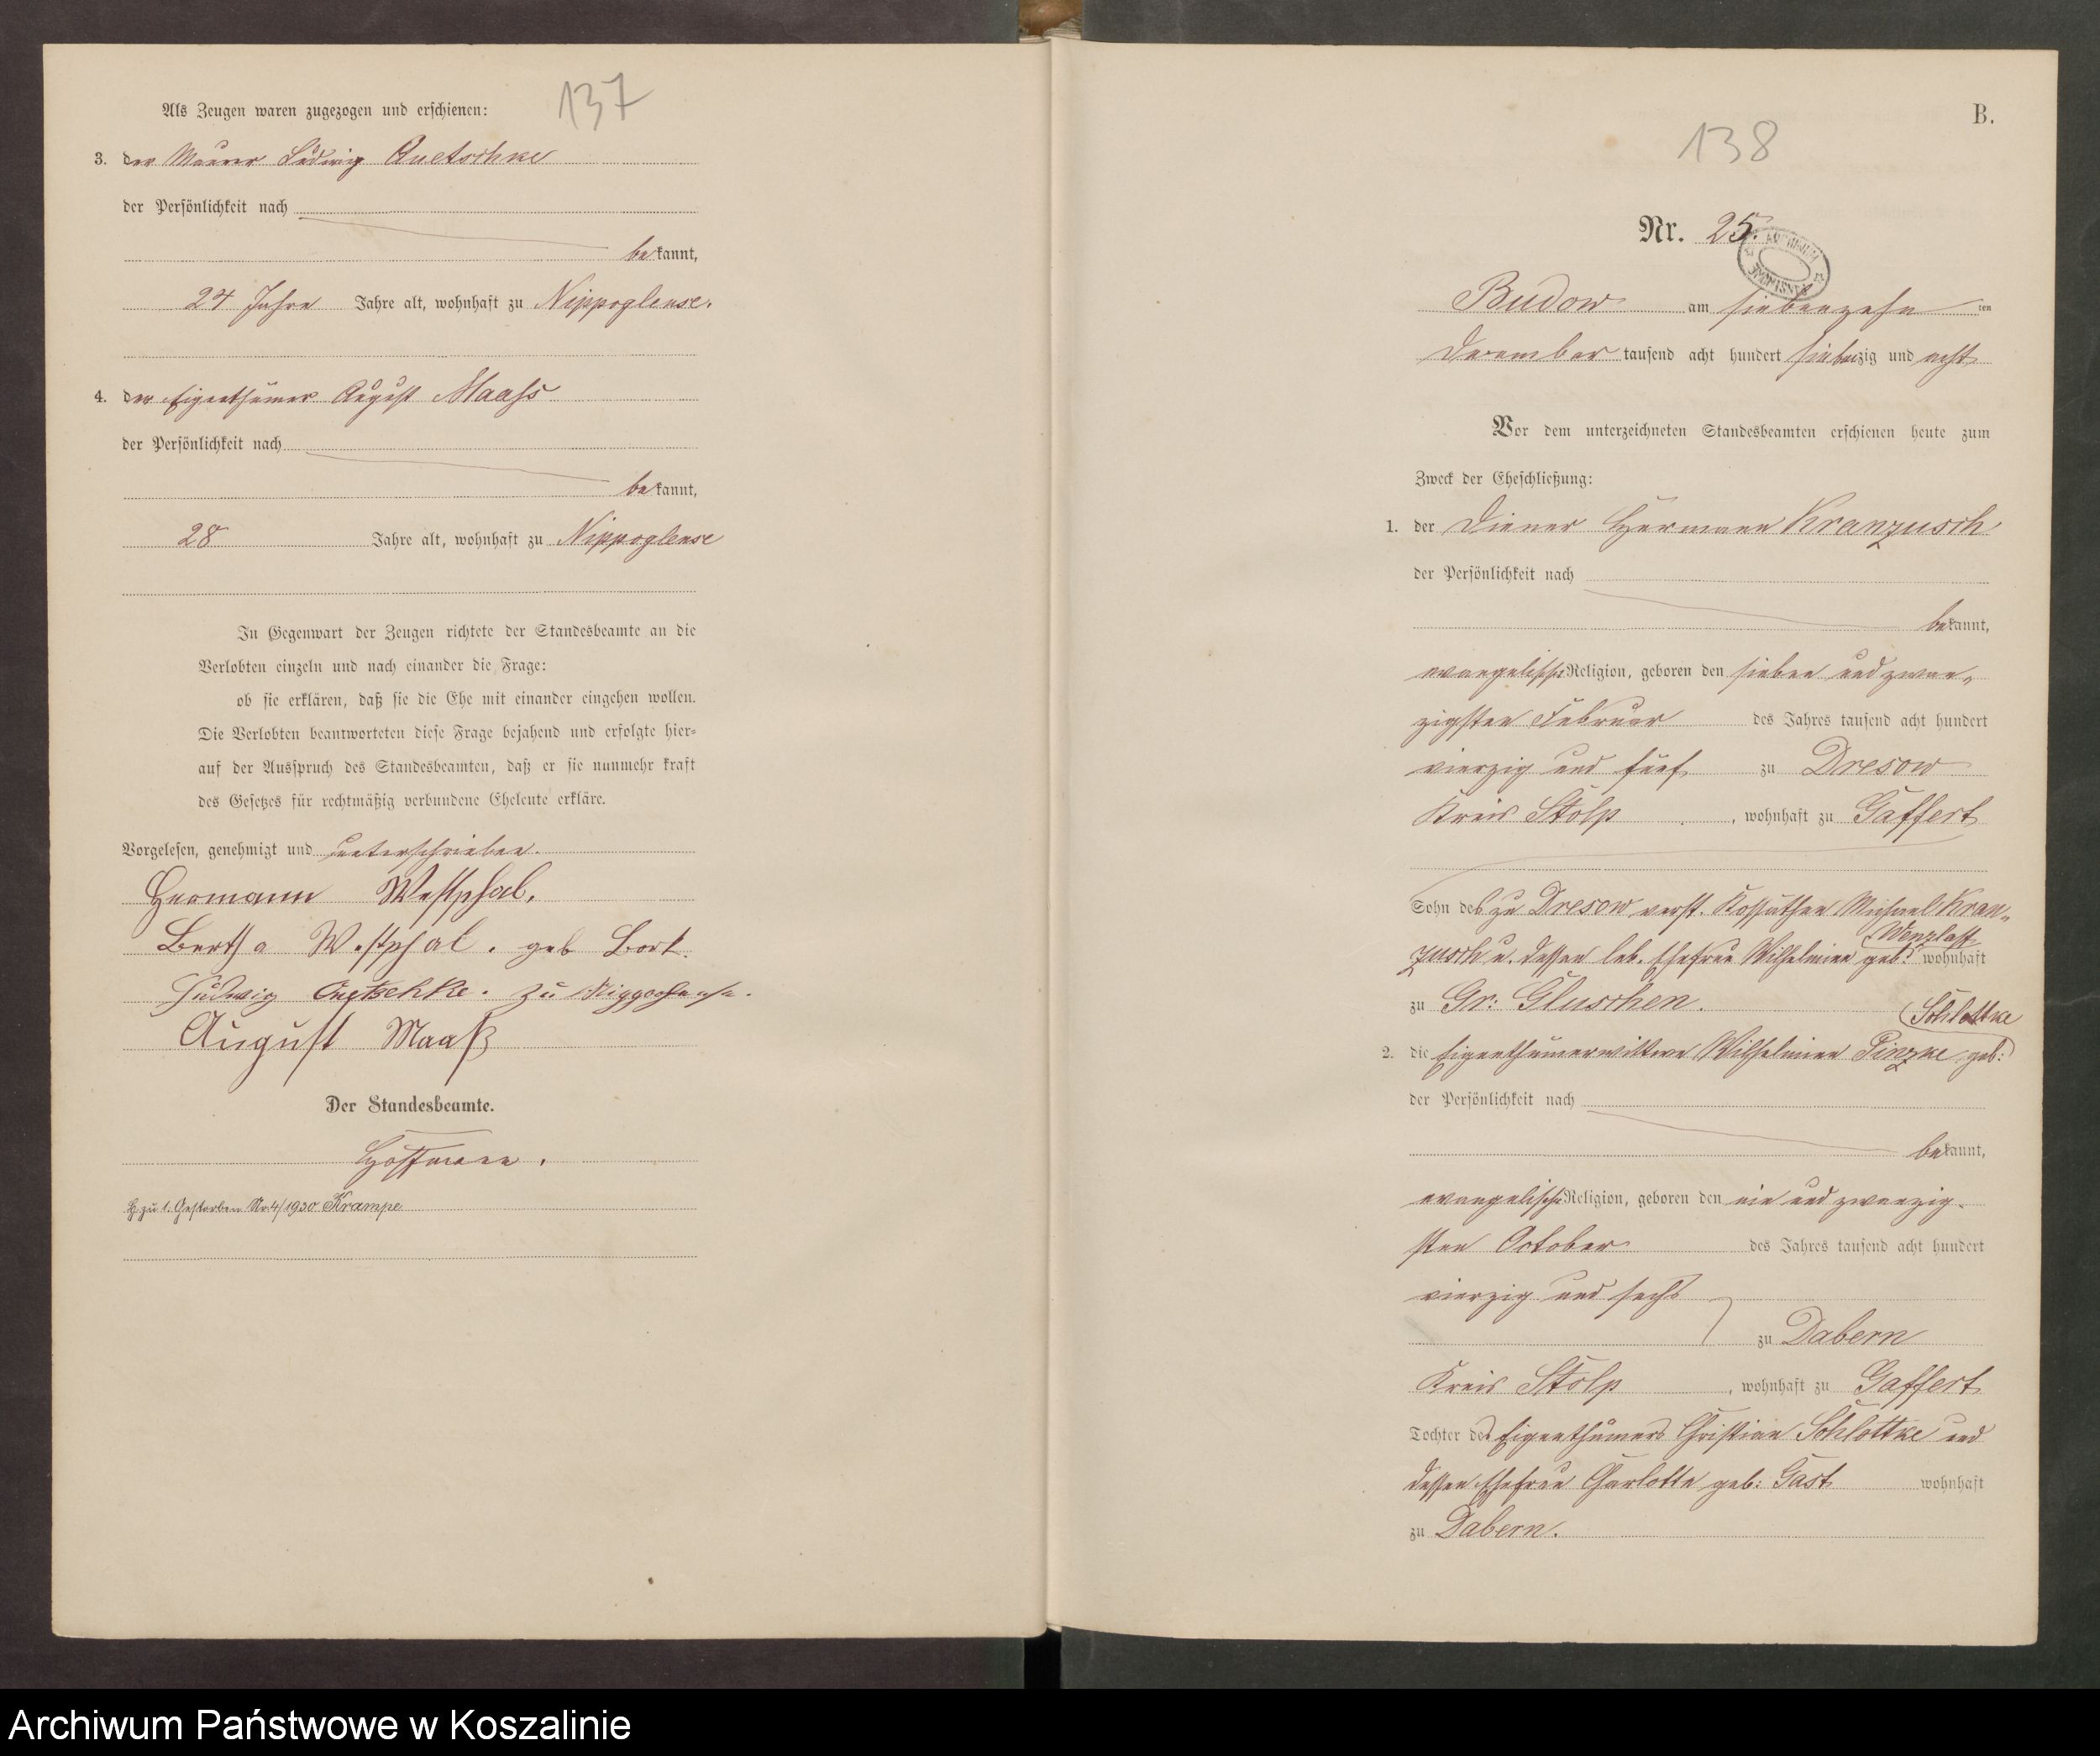 137
Als Zeugen waren zugezogen und erschienen:
3. der Maurer Ludwig Quetschke
der Persönlichkeit nach
bekannt,
24 Jahre Jahre alt, wohnhaft zu Nippoglense.
4. der Eigenthümer August Maaß
der Persönlichkeit nach
bekannt,
28 Jahre alt, wohnhaft zu Nippoglense
In Gegenwart der Zeugen richtete der Standesbeamte an die
Verlobten einzeln und nach einander die Frage:
ob sie erklären, daß sie die Ehe mit einander eingehen wollen.
Die Verlobten beantworteten diese Frage bejahend und erfolgte hier-
auf der Ausspruch des Standesbeamten, daß er sie nunmehr kraft
des Gesetzes für rechtmäßig verbundene Eheleute erkläre.
Vorgelesen, genehmigt und unterschrieben.
Hermann Westphal.
Bertha Westphal. geb Bork.
Ludwig Quetschke. zu
August Maaß
Der Standesbeamte.
Hoffmann.
H. zu 1. Gestorben Nr. 4/1930 Krampe
B.
138
Nr. 25.
ARCHIWUM PAŃSTWOWE
Budow am siebenzehn ten
December tausend acht hundert siebenzig und acht
Vor dem unterzeichneten Standesbeamten erschienen heute zum
Zweck der Eheschließung:
1. der Diener Hermann Kranzusch
der Persönlichkeit nach
bekannt,
evangelischer Religion, geboren den sieben und zwan-
zigsten Februar des Jahres tausend acht hundert
vierzig und fünf zu Dresow
Kreis Stolp, wohnhaft zu Gaffert
Sohn des zu Dresow verst. Kossäthen Michael Kran-
zusch u. dessen leb. Ehefrau Wilhelmine geb: Wenzlaff wohnhaft
zu Gr: Gluschen.
2. die Eigenthümerwittwe Wilhelmine Pinzke geb: Schlottke
der Persönlichkeit nach
bekannt,
evangelischer Religion, geboren den ein und zwanzig-
sten October des Jahres tausend acht hundert
vierzig und sechs
zu Dabern
Kreis Stolp, wohnhaft zu Gaffert
Tochter des Eigenthümers Christian Schlottke und
dessen Ehefrau Charlotte geb: Gast wohnhaft
zu Dabern.
Archiwum Państwowe w Koszalinie